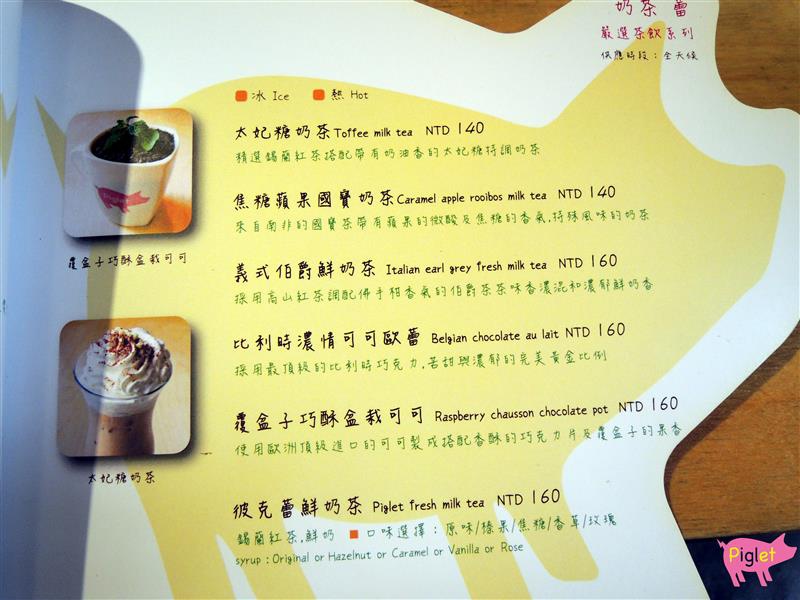 奶茶蕾
嚴選茶飲系列
供應時段：全天候
冰 Ice 熱 Hot
太妃糖奶茶 Toffee milk tea NTD 140
精選錫蘭紅茶搭配帶有奶油香的太妃糖特調奶茶
焦糖蘋果國寶奶茶 Caramel apple rooibos milk tea NTD 140
來自南非的國寶茶帶有蘋果的微酸及焦糖的香氣,特殊風味的奶茶
義式伯爵鮮奶茶 Italian earl grey fresh milk tea NTD 160
採用高山紅茶調配佛手柑香氣的伯爵茶茶味香濃混和濃郁鮮奶香
比利時濃情可可歐蕾 Belgian chocolate au lait NTD 160
採用最頂級的比利時巧克力,苦甜與濃郁的完美黃金比例
覆盆子巧酥盆栽可可 Raspberry chausson chocolate pot NTD 160
使用歐洲頂級進口的可可製成搭配香酥的巧克力片及覆盆子的果香
彼克蕾鮮奶茶 Piglet fresh milk tea NTD 160
錫蘭紅茶,鮮奶 口味選擇：原味/榛果/焦糖/香草/玫瑰
syrup : Original or Hazelnut or Caramel or Vanilla or Rose
Piglet
覆盆子巧酥盆栽可可
太妃糖奶茶
Piglet